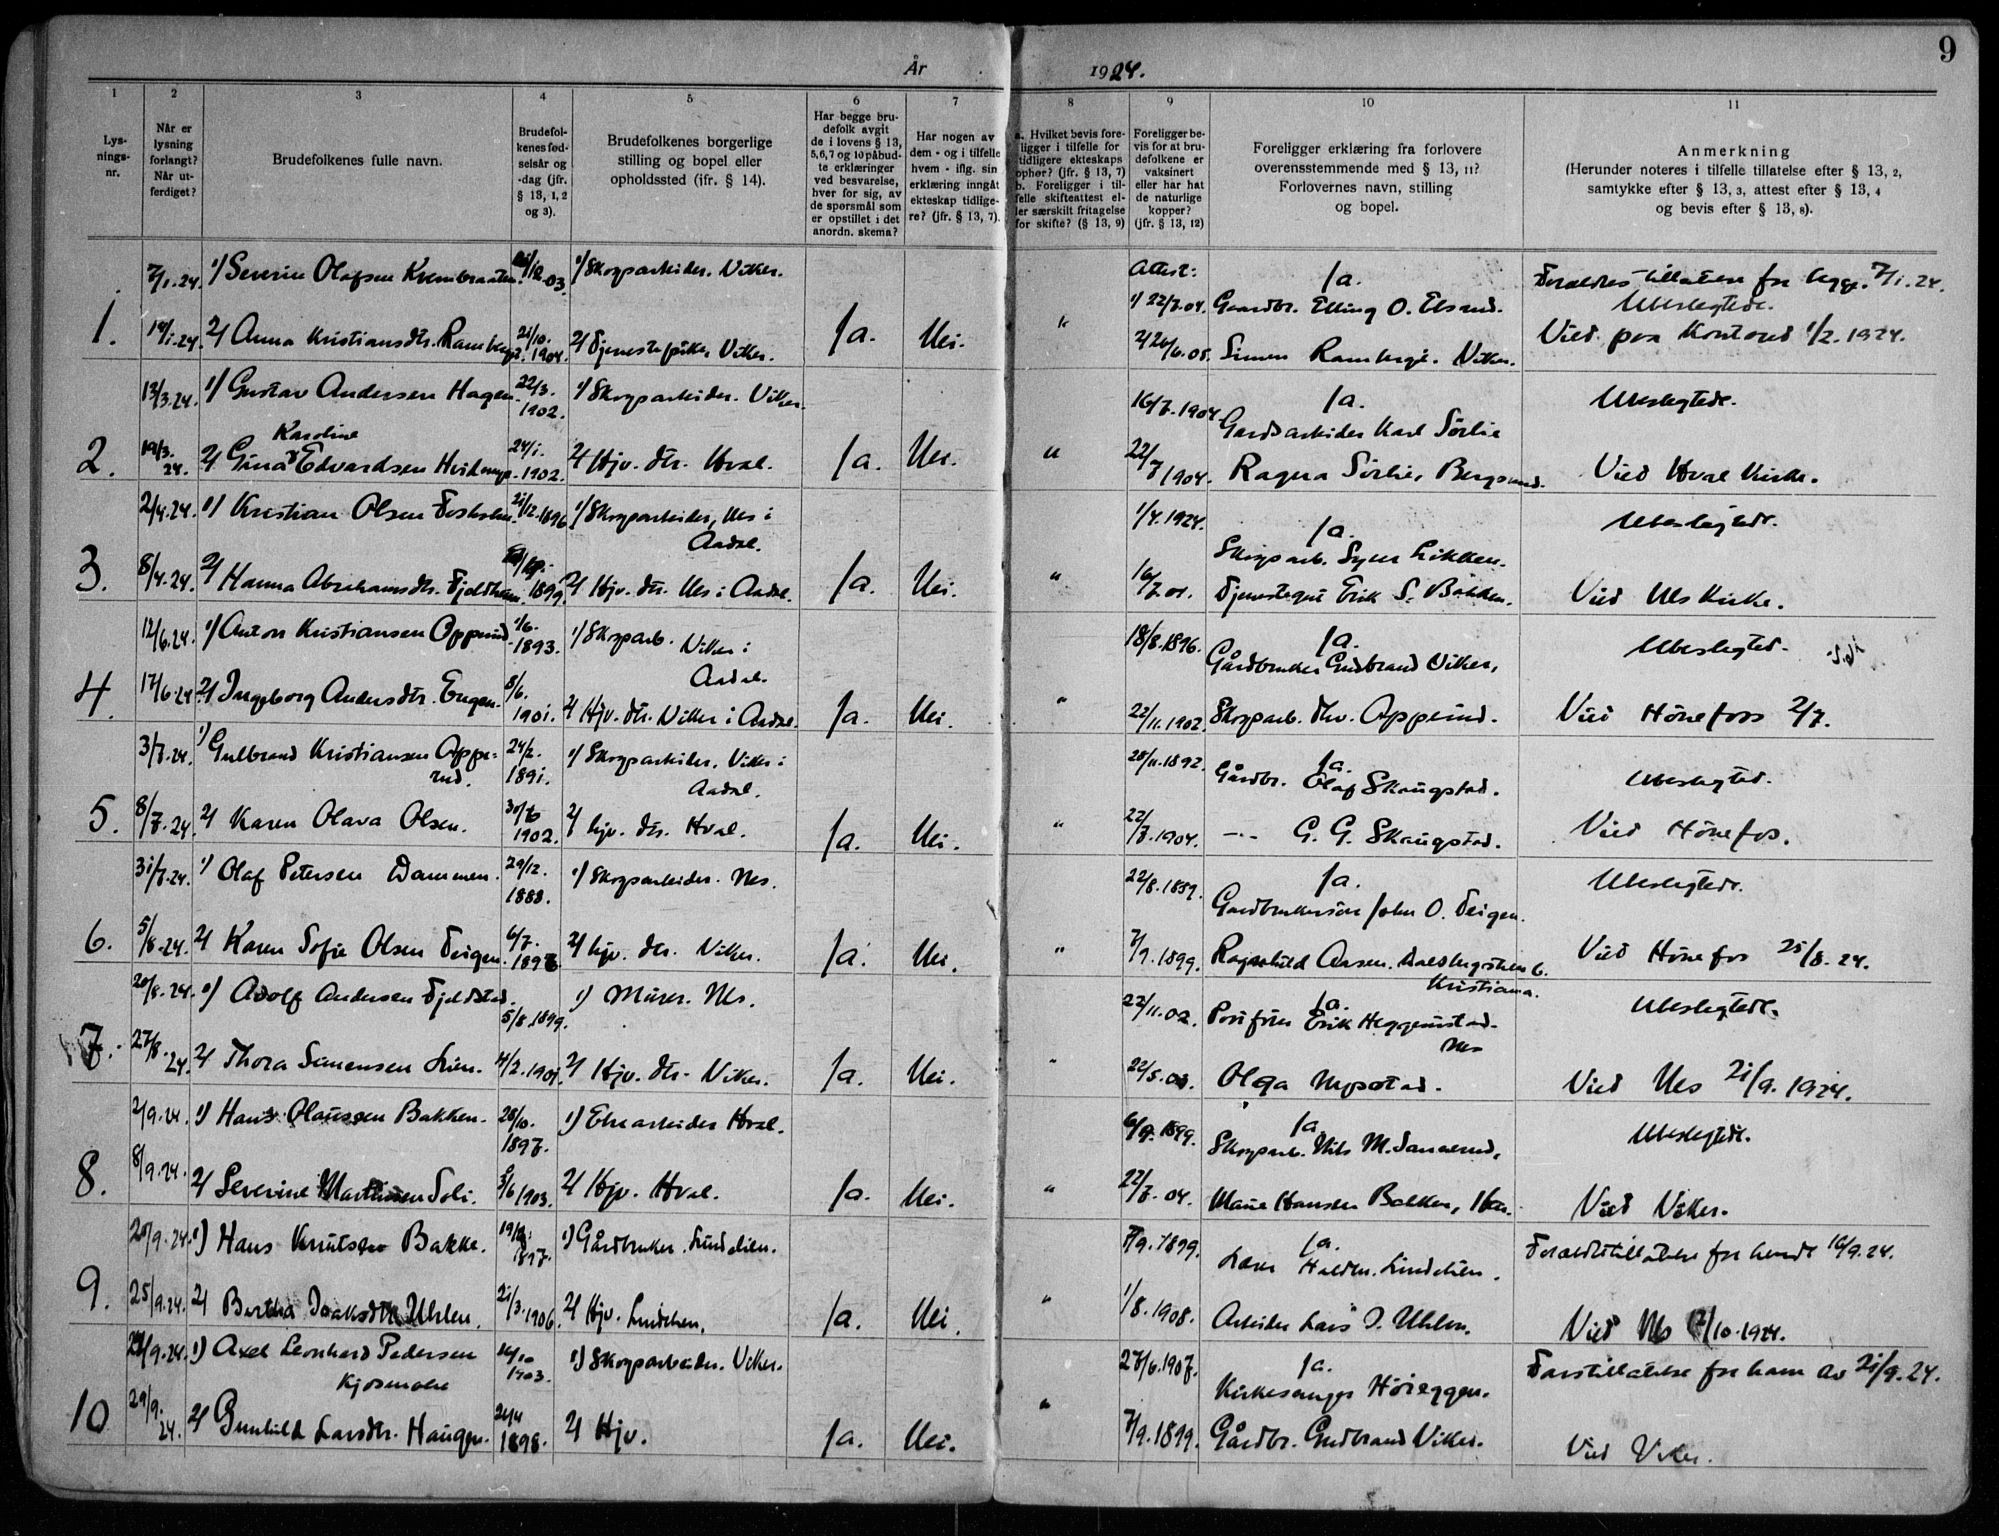 9
År 1924.
1
2
3
4
5
6
7
8
9
10
11
Lys-
nings-
nr.
Når er
lysning
forlangt?
Når ut-
ferdiget?
Brudefolkenes fulle navn.
Brudefol-
kenes fød-
selsår og
-dag (jfr.
§ 13, 1, 2
og 3).
Brudefolkenes borgerlige
stilling og bopel eller
opholdssted (jfr. § 14).
Har begge bru-
defolk avgit
de i lovens § 13,
5, 6, 7 og 10 påbud-
te erklæringer
ved besvarelse,
hver for sig, av
de spørsmål som
er opstillet i det
anordn. skema?
Har nogen av
dem - og i tilfelle
hvem - iflg. sin
erklæring inngåt
ekteskap tidlige-
re? (jfr. § 13, 7).
a. Hvilket bevis fore-
ligger i tilfelle for
tidligere ekteskaps
ophør? (jfr. § 13, 7)
b. Foreligger i til-
felle skifteattest el-
ler særskilt fritagelse
for skifte? (§ 13, 9)
Foreligger be-
vis for at bru-
defolkene er
vaksinert
eller har hat
de naturlige
kopper?
(jfr. § 13, 12)
Foreligger erklæring fra forlovere
overensstemmende med § 13, 11?
Forlovernes navn, stilling
og bopel.
Anmerkning
(Herunder noteres i tilfelle tillatelse efter § 13, 2,
samtykke efter § 13, 3, attest efter § 13, 4
og bevis efter § 13, 8).
7/1.24. 1) Severin Olafsen 1) Skogsarbeider. Viker. Attest: Ja. 7/1.24.
1) 22/7.04. Gaardbr. Elling O. Elsrud. Ubeslegtede.
1. 2) Anna Kristiansdtr. 21/10. 1904. 2) Tjenestepike, Viker. Ja. Nei. " Simen Viker. Viet paa Kontoret 1/2.1924.
13/3.24. 1) Gustav Andersen Hagen. 22/3. 1902. 1) Skogsarbeider. Viker. 16/7.1904. Ja. Ubeslegtede.
Karoline
Gardsarbeider Karl Sørlie
2. 19/3. 24. 2) Gina Edvardsen 24/1. 1902. 2) Hjv. dtr. Hval. Ja. Nei. " 22/7 1904. Ragna Sørlie, Viet Hval Kirke.
2/4.24. 1) Kristian Olsen 21/12.1896. 1) Skogsarbeider, Nes i Aadal. 1/4.1924. Ja. Ubeslegtede.
Skogsarb. Syver Likken.
3. 8/4.24. 2) Hanna Abrahamsdtr. 1899. 2) Hjv. dtr. Nes i Aadal. Ja. Nei. " 16/7.01. Erik S. Viet Nes Kirke.
12/6.24. 1) Anton Kristiansen Opperud 1/6. 1893. 1) Skogsarb. Viker i Aadal. 18/8.1896. Ja. Ubeslegted.
Gårdbruker Gudbrand Viker,
4. 17/6.24. 2) Ingeborg Andersdtr. Engen. 8/6. 1901. 2) Hjv. dtr. Viker i Aadal. Ja. Nei. " 22/11.1902. Skogsarb. Opperud. Viet Hønefoss 2/7.
3/7.24. 1) Gulbrand Kristiansen Oppe-
rud. 24/2. 1891. 1) Skogsarbeider. Viker i Aadal. 28/11.1892. Ja. Ubeslegted.
Gårdbr. Olaf Skaugstad.
5. 8/7.24. 2) Karen Olava Olsen. 1902. 2) hjv. dtr. Hval. Ja. Nei. " 22/7.1904. -"- G. G. Skaugstad. Viet Hønefos.
31/7.24. 1) Olaf Petersen Dammen. 29/12. 1888. 1) Skogsarbeider. Nes. 22/8.1889. Ja. Ubeslegtede.
John O. Teigen.
6. 5/8.24. 2) Karen Sofie Olsen Teigen. 6/7. 2) hjv. dtr. Viker. Ja. Nei. " 7/9.1899. Ragnhild Aasen. Kristiania. Viet Hønefos 25/8.24.
20/8.24. 1) Adolf Andersen Fjeldstad. 5/8.1899. 1) Murer. Nes. 22/11.02. Ja. Ubeslegtede.
Erik Heggenstad. Nes
7. 27/8.24. 2) Thora Simensen Lien. 4/2.1901. 2) Hjv. dtr. Viker. Ja. Nei. " Olga Viet Nes 21/9.1924.
2/9.24. 1) Hans Olaussen Bakken. 28/10. 1897. 1) Elvearbeider Hval. 1899. Ja Ubeslegtede.
Skogsarb. Nils M.
8. 8/9.24. 2) Severine Martinsen Soli. 3/6 1903. 2) Hjv. Hval. Ja. Nei. " 22/7.04. Marie Hansen Bakken, Viet Viker.
20/9.24. 1) Hans Knutsen Bakke. 1897. 1) Gårdbruker. Lindelien. 7/9.1899. Ja. 16/9.24.
Lindelien.
9. 25/9.24. 2) Bertha Isaksdtr. Uhlen. 21/3.1906. 2) Hjv. Lindelien. Ja. Nei. " 1/8.1908. Arbeider Lars I. Uhlen. Viet Nes /10.1924.
1) Axel Leonhard Pedersen 1903. 1) Skogsarbeider. Viker. 27/6.1907. Ja. Farstillatelse for ham av 21/9.24.
Kirkesanger Høieggen.
10 29/9. 24. 2) Gunhild Larsdtr. Haugen. 1898. 2) Hjv. Ja. Nei. " 7/9.1899. Gårdbr. Gudbrand Viker. Viet Viker.